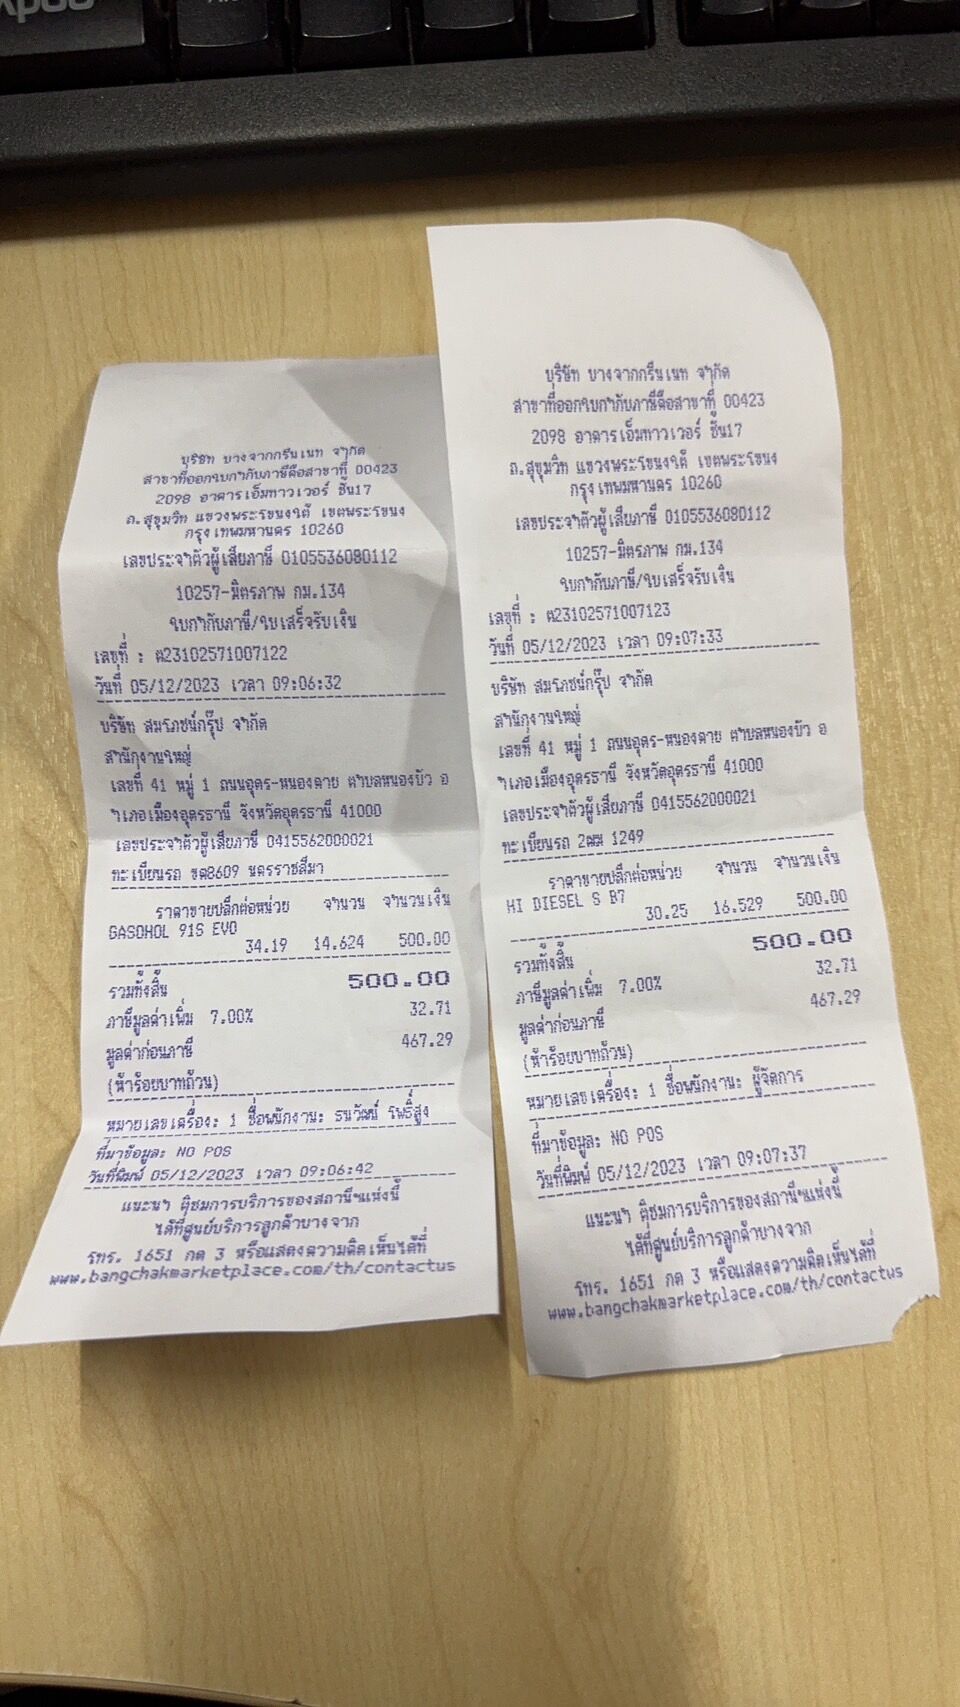 บริษัท บางจากกรีนเนท จำกัด
สาขาที่ออกใบกำกับภาษีคือสาขาที่ 00423
2098 อาคารเอ็มทาวเวอร์ ชั้น17
ถ.สุขุมวิท แขวงพระโขนงใต้ เขตพระโขนง
กรุงเทพมหานคร 10260
เลขประจำตัวผู้เสียภาษี 0105536080112
10257-มิตรภาพ กม.134
ใบกำกับภาษี/ใบเสร็จรับเงิน
เลขที่ : ต23102571007122
วันที่ 05/12/2023 เวลา 09:06:32
บริษัท สมโภชน์กรุ๊ป จำกัด
สำนักงานใหญ่
เลขที่ 41 หมู่ 1 ถนนอุดร-หนองคาย ตำบลหนองบัว อ
ำเภอเมืองอุดรธานี จังหวัดอุดรธานี 41000
เลขประจำตัวผู้เสียภาษี 0415562000021
ทะเบียนรถ ขต8609 นครราชสีมา
ราคาขายปลีกต่อหน่วย จำนวน จำนวนเงิน
GASOHOL 91S EVO
34.19 14.624 500.00
รวมทั้งสิ้น 500.00
ภาษีมูลค่าเพิ่ม 7.00% 32.71
มูลค่าก่อนภาษี 467.29
(ห้าร้อยบาทถ้วน)
หมายเลขเครื่อง: 1 ชื่อพนักงาน: ธนวัฒน์ โพธิ์สูง
ที่มาข้อมูล: NO POS
วันที่พิมพ์ 05/12/2023 เวลา 09:06:42
แนะนำ ติชมการบริการของสถานีฯแห่งนี้
ได้ที่ศูนย์บริการลูกค้าบางจาก
โทร. 1651 กด 3 หรือแสดงความคิดเห็นได้ที่
www.bangchakmarketplace.com/th/contactus
บริษัท บางจากกรีนเนท จำกัด
สาขาที่ออกใบกำกับภาษีคือสาขาที่ 00423
2098 อาคารเอ็มทาวเวอร์ ชั้น17
ถ.สุขุมวิท แขวงพระโขนงใต้ เขตพระโขนง
กรุงเทพมหานคร 10260
เลขประจำตัวผู้เสียภาษี 0105536080112
10257-มิตรภาพ กม.134
ใบกำกับภาษี/ใบเสร็จรับเงิน
เลขที่ : ต23102571007123
วันที่ 05/12/2023 เวลา 09:07:33
บริษัท สมโภชน์กรุ๊ป จำกัด
สำนักงานใหญ่
เลขที่ 41 หมู่ 1 ถนนอุดร-หนองคาย ตำบลหนองบัว อ
ำเภอเมืองอุดรธานี จังหวัดอุดรธานี 41000
เลขประจำตัวผู้เสียภาษี 0415562000021
ทะเบียนรถ 1249
ราคาขายปลีกต่อหน่วย จำนวน จำนวนเงิน
HI DIESEL S B7
30.25 16.529 500.00
รวมทั้งสิ้น 500.00
ภาษีมูลค่าเพิ่ม 7.00% 32.71
มูลค่าก่อนภาษี 467.29
(ห้าร้อยบาทถ้วน)
หมายเลขเครื่อง: 1 ชื่อพนักงาน: ผู้จัดการ
ที่มาข้อมูล: NO POS
วันที่พิมพ์ 05/12/2023 เวลา 09:07:37
แนะนำ ติชมการบริการของสถานีฯแห่งนี้
ได้ที่ศูนย์บริการลูกค้าบางจาก
โทร. 1651 กด 3 หรือแสดงความคิดเห็นได้ที่
www.bangchakmarketplace.com/th/contactus